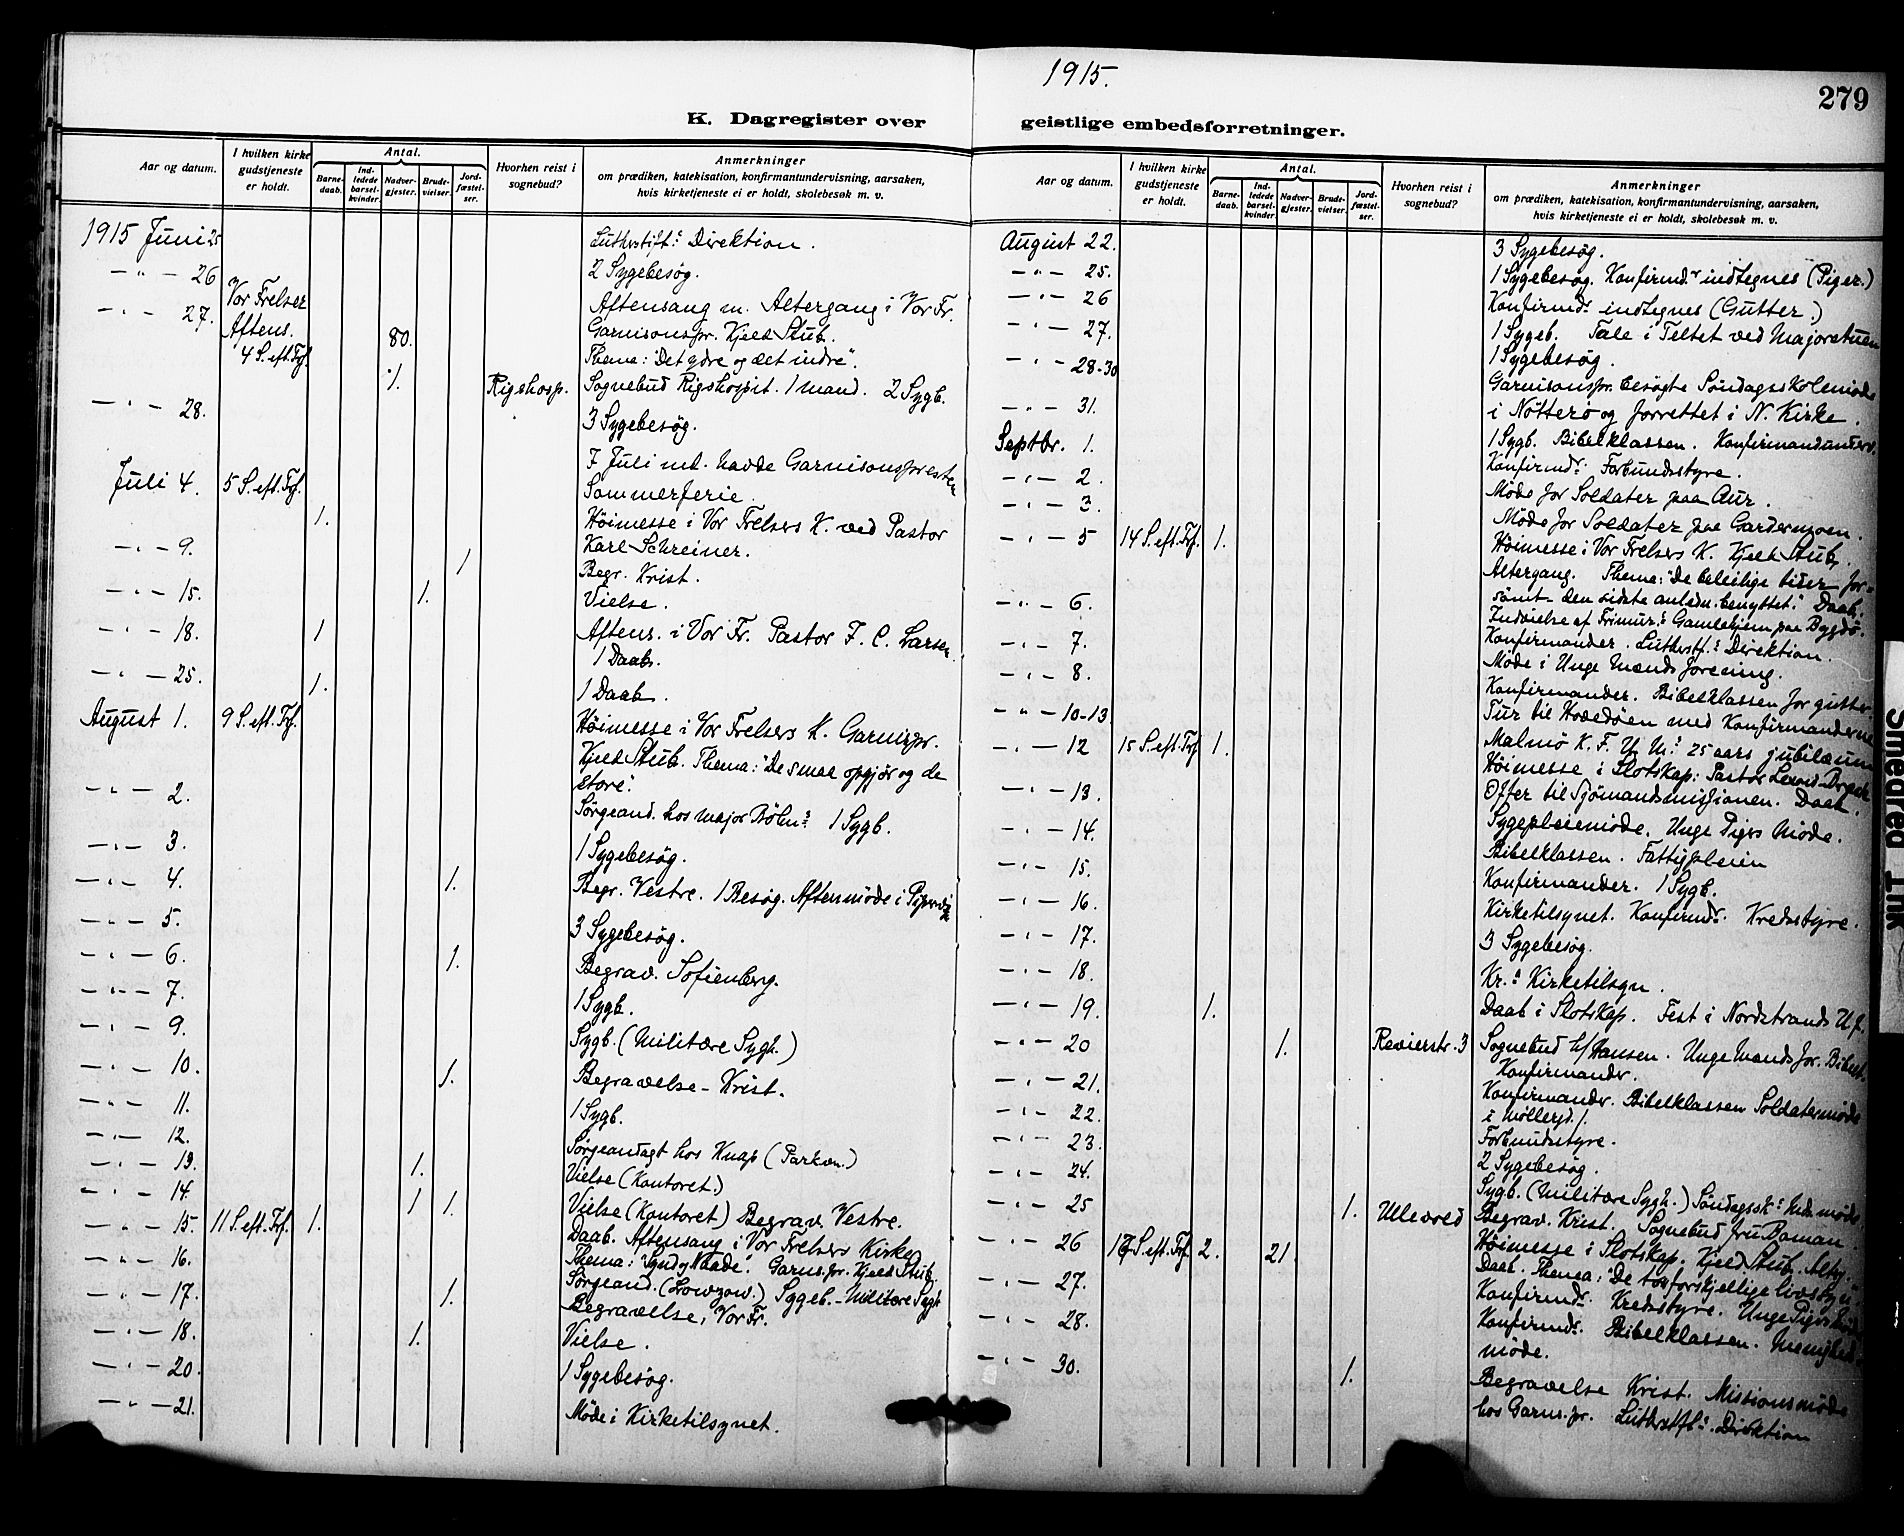 1915.
279
K. Dagregister over geistlige embedsforretninger.
Aar og datum.
I hvilken kirke gudstjeneste er holdt.
Antal.
Barnedaab.
Indledede barselkvinder.
Nadvergjester.
Brudevielser.
Jordfæstelser.
Hvorhen reist i sognebud?
Anmerkninger
om prædiken, katekisation, konfirmantundervisning, aarsaken,
hvis kirketjeneste ei er holdt, skolebesøk m. v.
1915 Juni 25 Lutherstift.s Direktion.
— " — 26 2 Sygebesøg.
— " — 27. Vor Frelser Aftensang m. Altergang i Vor Fr.
Aftens. 80. Garnisonspr. Kjeld Stub.
4 S. eft. Trf. Thema: "Det ydre og det indre".
1. Rigshosp. Sognebud Rigshospit. 1 mand. 2 Sygb.
— " — 28. 3 Sygebesøg.
7 Juli md. havde Garnisonspresten
Juli 4. 5 S. eft. Trf. Sommerferie.
1. Höimesse i Vor Frelsers K. ved Pastor
Karl Schreiner.
— " — 9. 1 Begr. Krist.
— " — 15. 1. Vielse.
— " — 18. 1 Aftens. i Vor Fr. Pastor F. C. Larsen.
1 Daab.
— " — 25. 1. 1 Daab.
August 1. 9 S. eft. Trf. Höimesse i Vor Frelsers K. Garnispr.
Kjeld Stub. Thema: "De smaa opgjør og de
store".
— " — 2. Sörgeand. hos major 1 Sygb.
— " — 3. 1 Sygebesøg.
— " — 4. 1. Begr. Vestre. 1 Besøg. Aftenmøde i
— " — 5. 3 Sygebesøg.
— " — 6. 1. Begrav. Sofienberg.
— " — 7. 1 Sygb.
— " — 9. Sygb. (Militære Sygh.)
— " — 10. 1. Begravelse - Krist.
— " — 11. 1 Sygb.
— " — 12. Sørgeandagt hos Knap (Parkvn.)
— " — 13. 1. Vielse (Kontoret.)
— " — 14. 1 1. Vielse (Kontoret) Begrav. Vestre.
— " — 15. 11 S. eft. Trf. 1. Daab. Aftensang i Vor Frelsers Kirke
— " — 16. Thema: "Synd og Naade". Garns.pr. Kjeld Stub.
Sørgeand. (Lowzow.) Sygeb. - Militære Sygh
— " — 17. 1. Begravelse, Vor Fr.
— " — 18. 1. Vielse.
— " — 20. 1 Sygebesøg.
— " — 21. Møde i Kirketilsynet.
Aar og datum.
I hvilken kirke gudstjeneste er holdt.
Antal.
Barnedaab.
Indledede barselkvinder.
Nadvergjester.
Brudevielser.
Jordfæstelser.
Hvorhen reist i sognebud?
Anmerkninger
om prædiken, katekisation, konfirmantundervisning, aarsaken,
hvis kirketjeneste ei er holdt, skolebesøk m. v.
August 22. 3 Sygebesøg.
— " — 25. 1 Sygebesøg. Konfirmd.r indtegnes (Piger.)
— " — 26 Konfirmd.r indtegnes (Gutter.)
— " — 27. 1 Sygeb. Tale i Teltet ved Majorstuen
— " — 28-30 1 Sygebesøg.
Garnisonspr. besøgte Søndagsskolemøde
— " — 31. i Nötterø og forrettet i N. Kirke.
Septbr. 1. 1 Sygb. Bibelklassen. Konfirmandunderv.
— " — 2. Konfirmd.r Forbundsstyre.
— " — 3. Møde for Soldater paa Aur.
Møde for Soldater paa Gardermoen.
— " — 5 14 S. eft. Trf. 1. Höimesse i Vor Frelsers K. Kjeld Stub.
Altergang. Thema: "De beleilige tider for-
sömt - den sidste anledn. benyttet." Daab.
— " — 6. Indvielse af Frimur.s Gamlehjem paa Bygdö.
— " — 7. Konfirmander. Lutherstf.s Direktion.
Møde i Unge Mænds forening.
— " — 8. Konfirmander. Bibelklassen for gutter.
— " — 10-13 Tur til Hovedøen med Konfirmanderne
Malmö K. F. U. M.s 25 aars jubilæum
— " — 12 15 S. eft. Trf. 1. Höimesse i Slotskap: Pastor
— " — 13. Ofter til Sjömandsmissionen. Daab.
Sygepleiemøde. Unge Pigers Møde.
— " — 14. Bibelklassen. Fattigpleien
— " — 15. Konfirmander. 1 Sygb.
— " — 16. Kirketilsynet. Konfirmd.r Kredsstyre.
— " — 17. 3 Sygebesøg.
— " — 18. Kr.s Kirketilsyn.
— " — 19. 1. Daab i Slotskap. Fest i Nordstrands U.f.
— " — 20 1. Revierstr. 3 Sognebud h/Hansen. Unge Mænds for. Bibelst.
— " — 21. Konfirmandr.
— " — 22. Konfirmandr. Bibelklassen Soldatermøde
i Møllergt. 1.
— " — 23. Forbundsstyre.
— " — 24. 2 Sygebesøg.
Sygb. (Militære Sygh.) Søndagssk.s møde
— " — 25 1. Ullevold Begrav. Krist. Sognebud fru Boman.
— " — 26 17 S. eft. Trf. 2. 21. Höimesse i Slotskap. Kjeld Stub. Altg.
— " — 27. Daab. Thema: "De to forskjellige livssyn".
Konfirmd.r Kredsstyre. Unge Pigers
— " — 28. Konfirmd.r Bibelklassen. Menigheds-
møde.
— " — 30. 1. Begravelse Krist. Missionsmøde
hos Garns.pr. Lutherstf.s Direktion
Smeared Ink